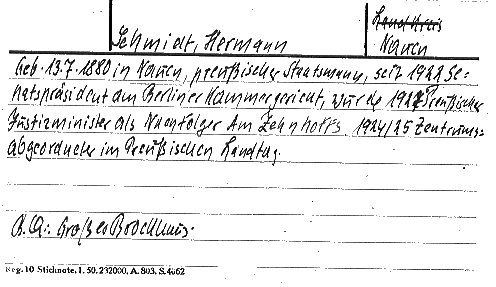 Schmidt, Hermann
Landkreis
Nauen
Geb. 13.7.1880 in Nauen, preußischer Staatsmann, seit 1922 Se-
natspräsident am Berliner Kammergericht, wurde 1927 Preußischer
Justizminister als Nachfolger Am Zehnhoffs. 1924/25 Zentrums=
abgeordneter im Preußischen Landtag.
B.Q.: Großer Brockhaus.
Reg. 10 Stichnote. I. 50. 232000. A. 803. S. 4062